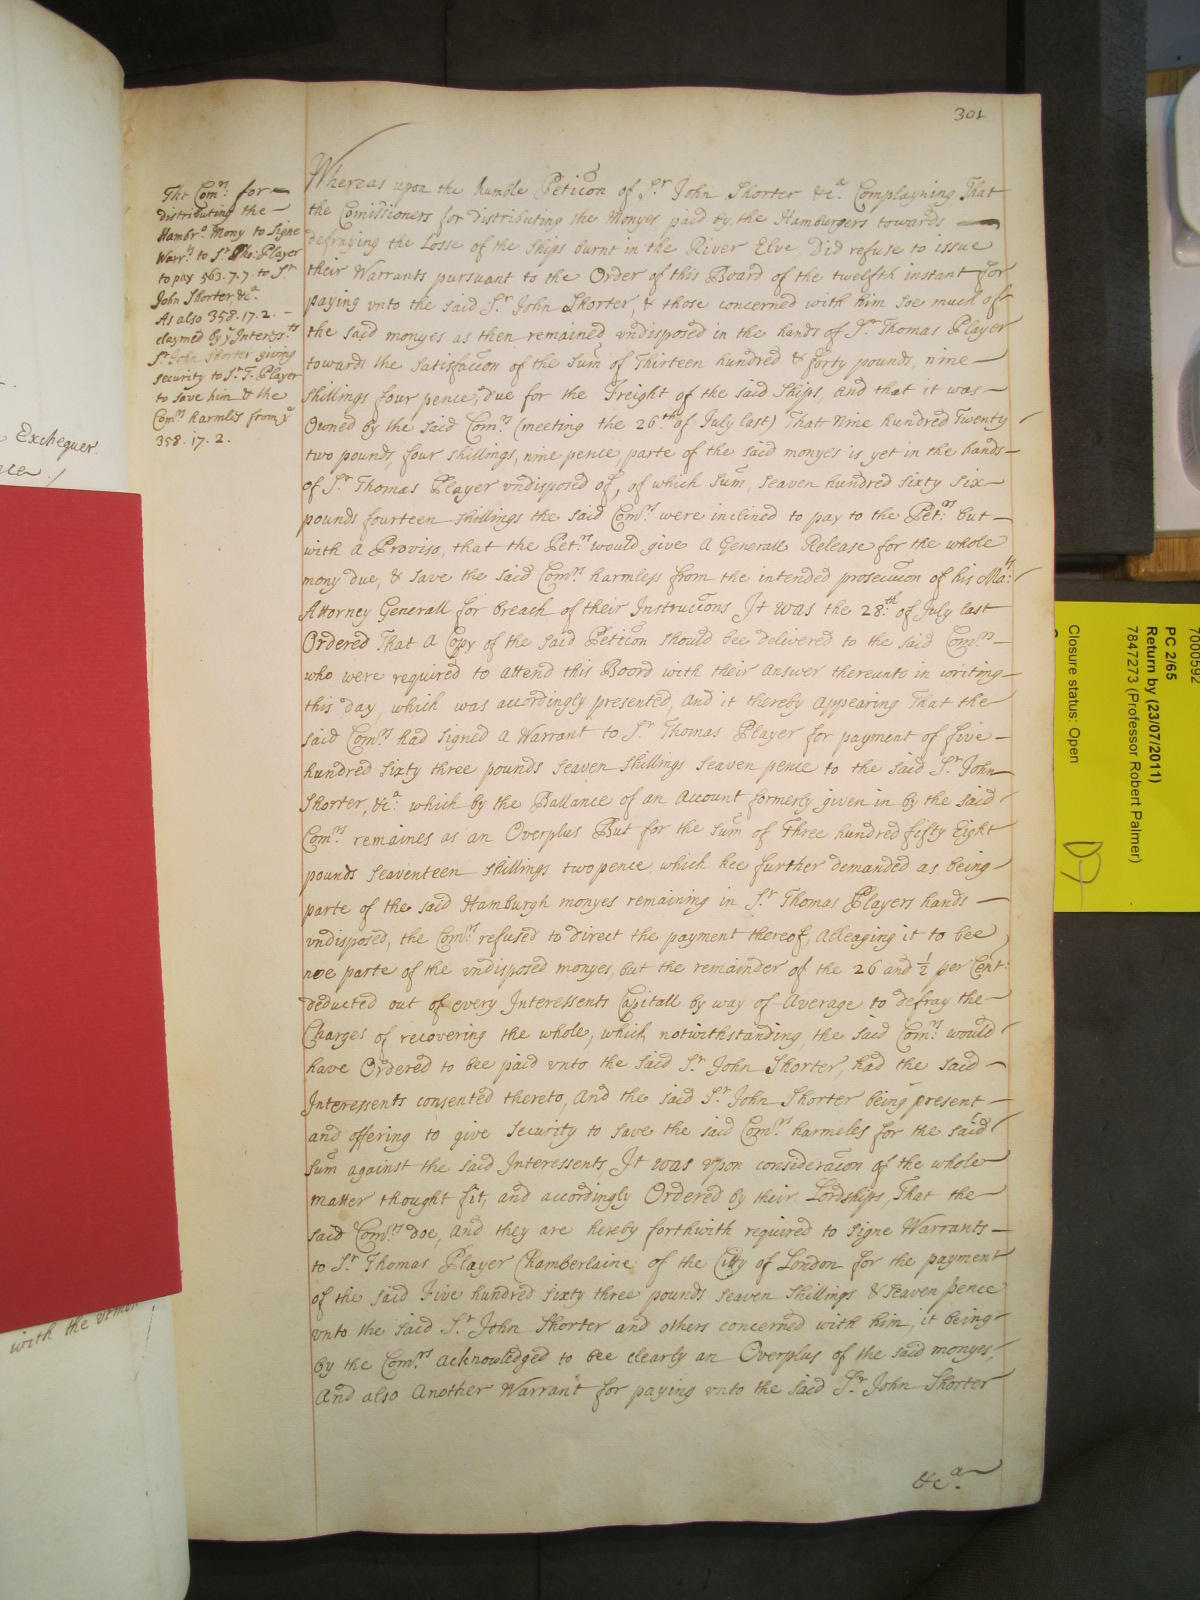 301
The Com.rs for
distributing the
Hambr.o Mony to signe
Warr.ts to S.r Tho: Player
to pay 563.7.7. to S.r
John Shorter, &c.a
As also 358.17.2.
claymed by y.e Interess.ts
S.r John Shorter giving
security to S.r T. Player
to save him & the
Com.rs harmles from y.e
358.17.2.
Whereas upon the humble Peticon of S.r John Shorter &c.a Complayning That
the Comissioners for distributing the Monyes paid by the Hamburgers towards
defraying the Losse of the Ships burnt in the River Elve, Did refuse to issue
their Warrants pursuant to the Order of this Board of the twelfth instant for
paying vnto the said S.r John Shorter, & those concerned with him soe much of
the said monyes as then remained vndisposed in the hands of S.r Thomas Player
towards the satisfaccon of the Sum of Thirteen hundred & forty pounds, nine
shillings four pence, due for the Freight of the said Ships, And that it was
Owned by the said Com.rs (meeting the 26.th of July last) That Nine hundred Twenty
two pounds, four shillings, nine pence, parte of the said monyes is yet in the hands
of S.r Thomas Player vndisposed of, of which Sum, seaven hundred sixty six
pounds fourteen shillings the said Com.rs were inclined to pay to the Pet.rs but
with a Proviso, that the Pet.rs would give a Generall Release for the whole
mony due, & save the said Com.rs harmless from the intended prosecucon of his Ma:ts
Attorney Generall for breach of their Instruccons It was the 28.th of July last
Ordered That a Copy of the said Peticon should bee delivered to the said Com.rs
who were required to attend this Boord with their answer thereunto in writing
this day, which was accordingly presented, And it thereby appearing That the
said Com.rs had signed a Warrant to S.r Thomas Player for payment of five
hundred sixty three pounds seaven shillings seaven pence to the said S.r John
Shorter, &c.a which by the Ballance of an Account formerly given in by the said
Com.rs remaines as an Overplus But for the Sum of Three hundred fifty Eight
pounds seaventeen shillings two pence, which hee further demanded as being
parte of the said Hamburgh monyes remaining in S.r Thomas Players hands
vndisposed, the Com.rs refused to direct the payment thereof, Alleaging it to bee
noe parte of the vndisposed monyes, but the remainder of the 26 and ½ per Cent:
deducted out of every Interessents Capitall by way of Average to defray the
Charges of recovering the whole, which notwithstanding, the said Com.rs would
have Ordered to bee paid vnto the said S.r John Shorter, had the said
Interessents consented thereto, And the said S.r John Shorter being present
and offering to give security to save the said Com.rs harmeles for the said
Sum against the said Interessents It was vpon consideracon of the whole
matter thought fit, and accordingly Ordered by their Lordships, That the
said Com.rs doe, and they are hereby forthwith required to signe Warrants
to S.r Thomas Player Chamberlaine of the Citty of London for the payment
of the said Five hundred sixty three pounds seaven shillings & seaven pence
vnto the said S.r John Shorter and others concerned with him, it being
by the Com.rs acknowledged to bee clearly an Overplus of the said monyes,
And also Another Warrant for paying vnto the said S.r John Shorter
&c.a
Exchequer
with the
7000592
PC 2/65
Return by (23/07/2011)
7847273 (Professor Robert Palmer)
Closure status: Open